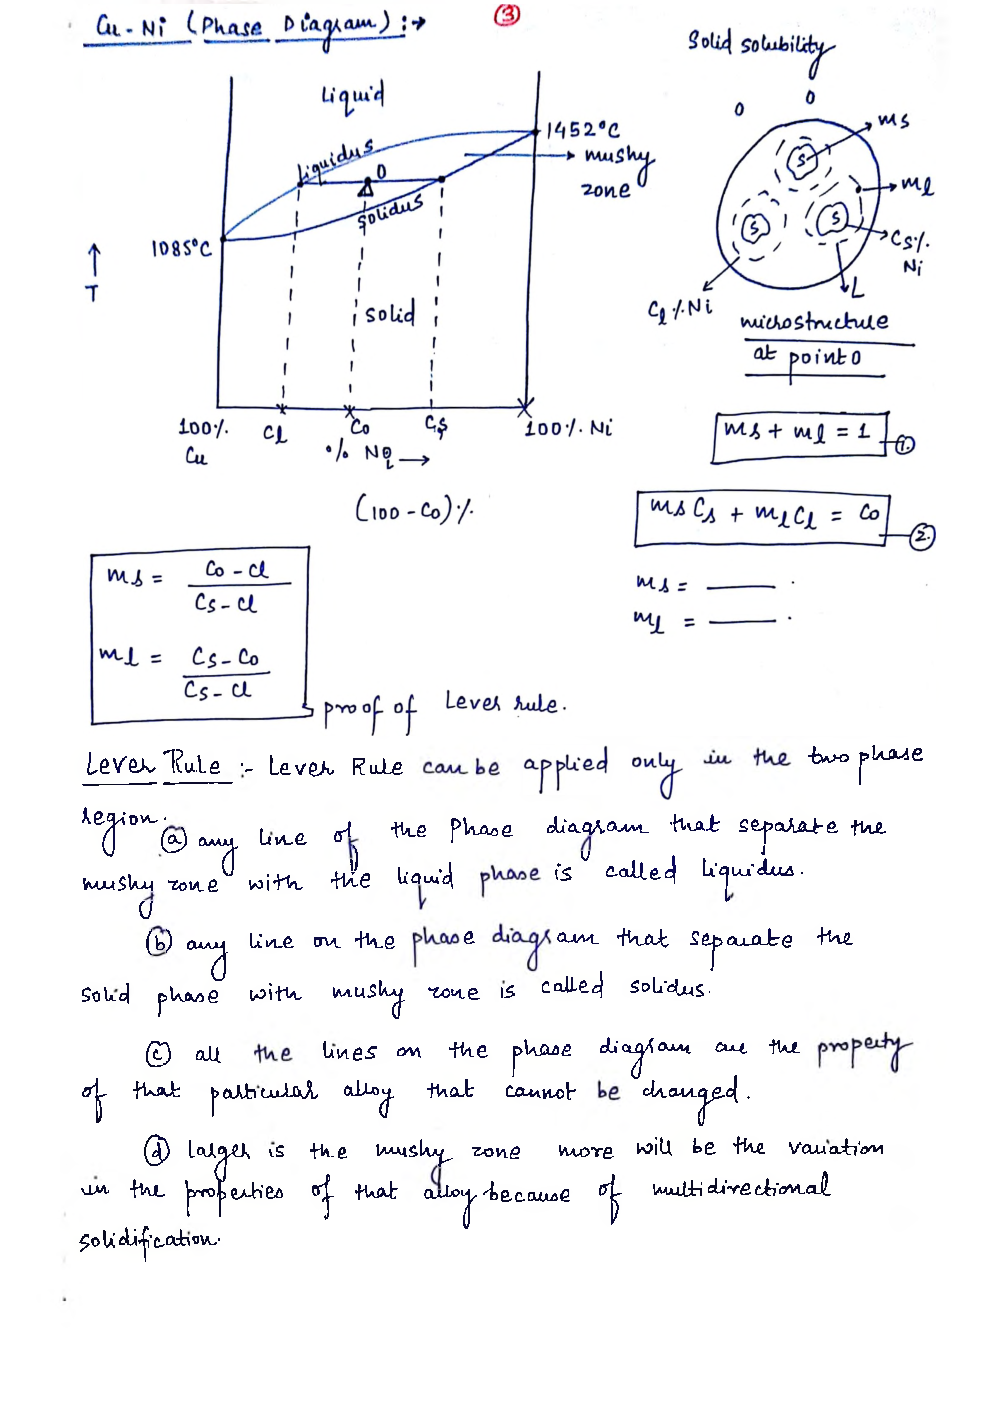 Cu-Ni (Phase Diagram) :→
3
Solid solubility
Liquid
liquidus
O
solidus
1452°C
mushy
zone
1085°C
↑
T
solid
100%
Cu
Cl
Co
Cs
100% Ni
% Ni →
(100-Co)%
O
O
ms
ml
S
S
S
Cs%
Ni
L
Cl%Ni
microstructure
at point O
ms + ml = 1
1.
ms Cs + ml Cl = Co
2.
ms = ——— .
ml = ——— .
ms = Co - Cl
Cs - Cl
ml = Cs - Co
Cs - Cl
proof of Lever rule.
Lever Rule :- Lever Rule can be applied only in the two phase
region.
(a) any line of the Phase diagram that separate the
mushy zone with the liquid phase is called liquidus.
(b) any line on the phase diagram that separate the
solid phase with mushy zone is called solidus.
(c) all the lines on the phase diagram are the property
of that particular alloy that cannot be changed.
(d) larger is the mushy zone more will be the variation
in the properties of that alloy because of multidirectional
solidification.